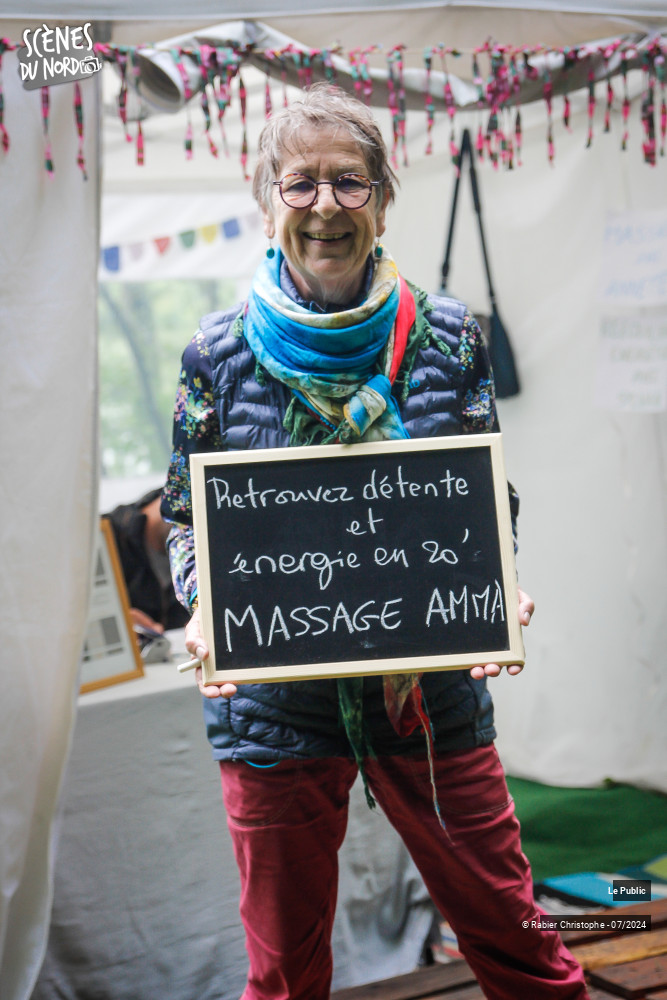 SCÈNES
DU NORD
Retrouvez détente
et
énergie en 20'
MASSAGE AMMA
Le Public
© Rabier Christophe - 07/2024